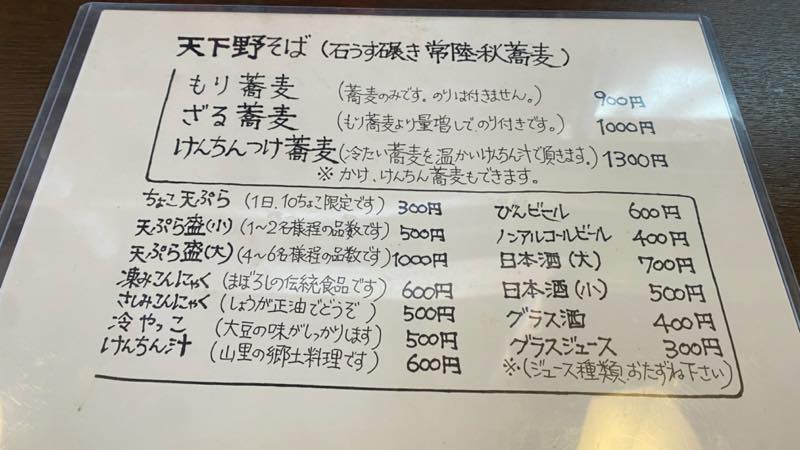 天下野そば(石うす碾き常陸秋蕎麦)
もり蕎麦 (蕎麦のみです。のりは付きません。) 900円
ざる蕎麦 (もり蕎麦より量増しで、のり付きです。) 1000円
けんちんつけ蕎麦 (冷たい蕎麦を温かいけんちん汁で頂きます。) 1300円
※かけ、けんちん蕎麦もできます。
ちょこ天ぷら (1日、10ちょこ限定です) 300円
天ぷら盛(小) (1~2名様程の品数です) 500円
天ぷら盛(大) (4~6名様程の品数です) 1000円
凍みこんにゃく (まぼろしの伝統食品です) 600円
さしみこんにゃく (しょうが正油でどうぞ) 500円
冷やっこ (大豆の味がしっかりします) 500円
けんちん汁 (山里の郷土料理です) 600円
びんビール 600円
ノンアルコールビール 400円
日本酒(大) 700円
日本酒(小) 500円
グラス酒 400円
グラスジュース 300円
※(ジュース種類、おたずね下さい)